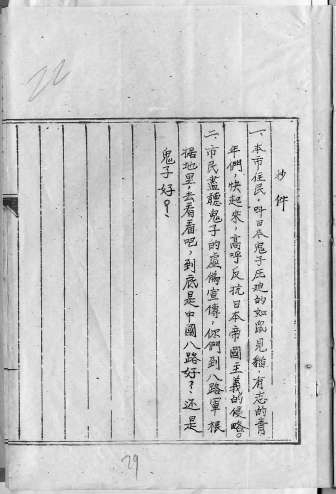 22
抄件
一、本市住民,叫日本鬼子压迫的如鼠見貓,有志的青
年們,快起来,高呼反抗日本帝國主義的侵略。
二、市民盡聽鬼子的虛偽宣傳,你們到八路軍根
据地里,去看看吧,到底是中國八路好?还是
鬼子好?
29